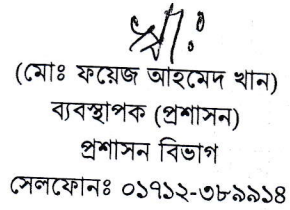 (মোঃ ফয়েজ আহমেদ খান)
ব্যবস্থাপক (প্রশাসন)
প্রশাসন বিভাগ
সেলফোনঃ ০১৭১২-৩৮৯৯১৪